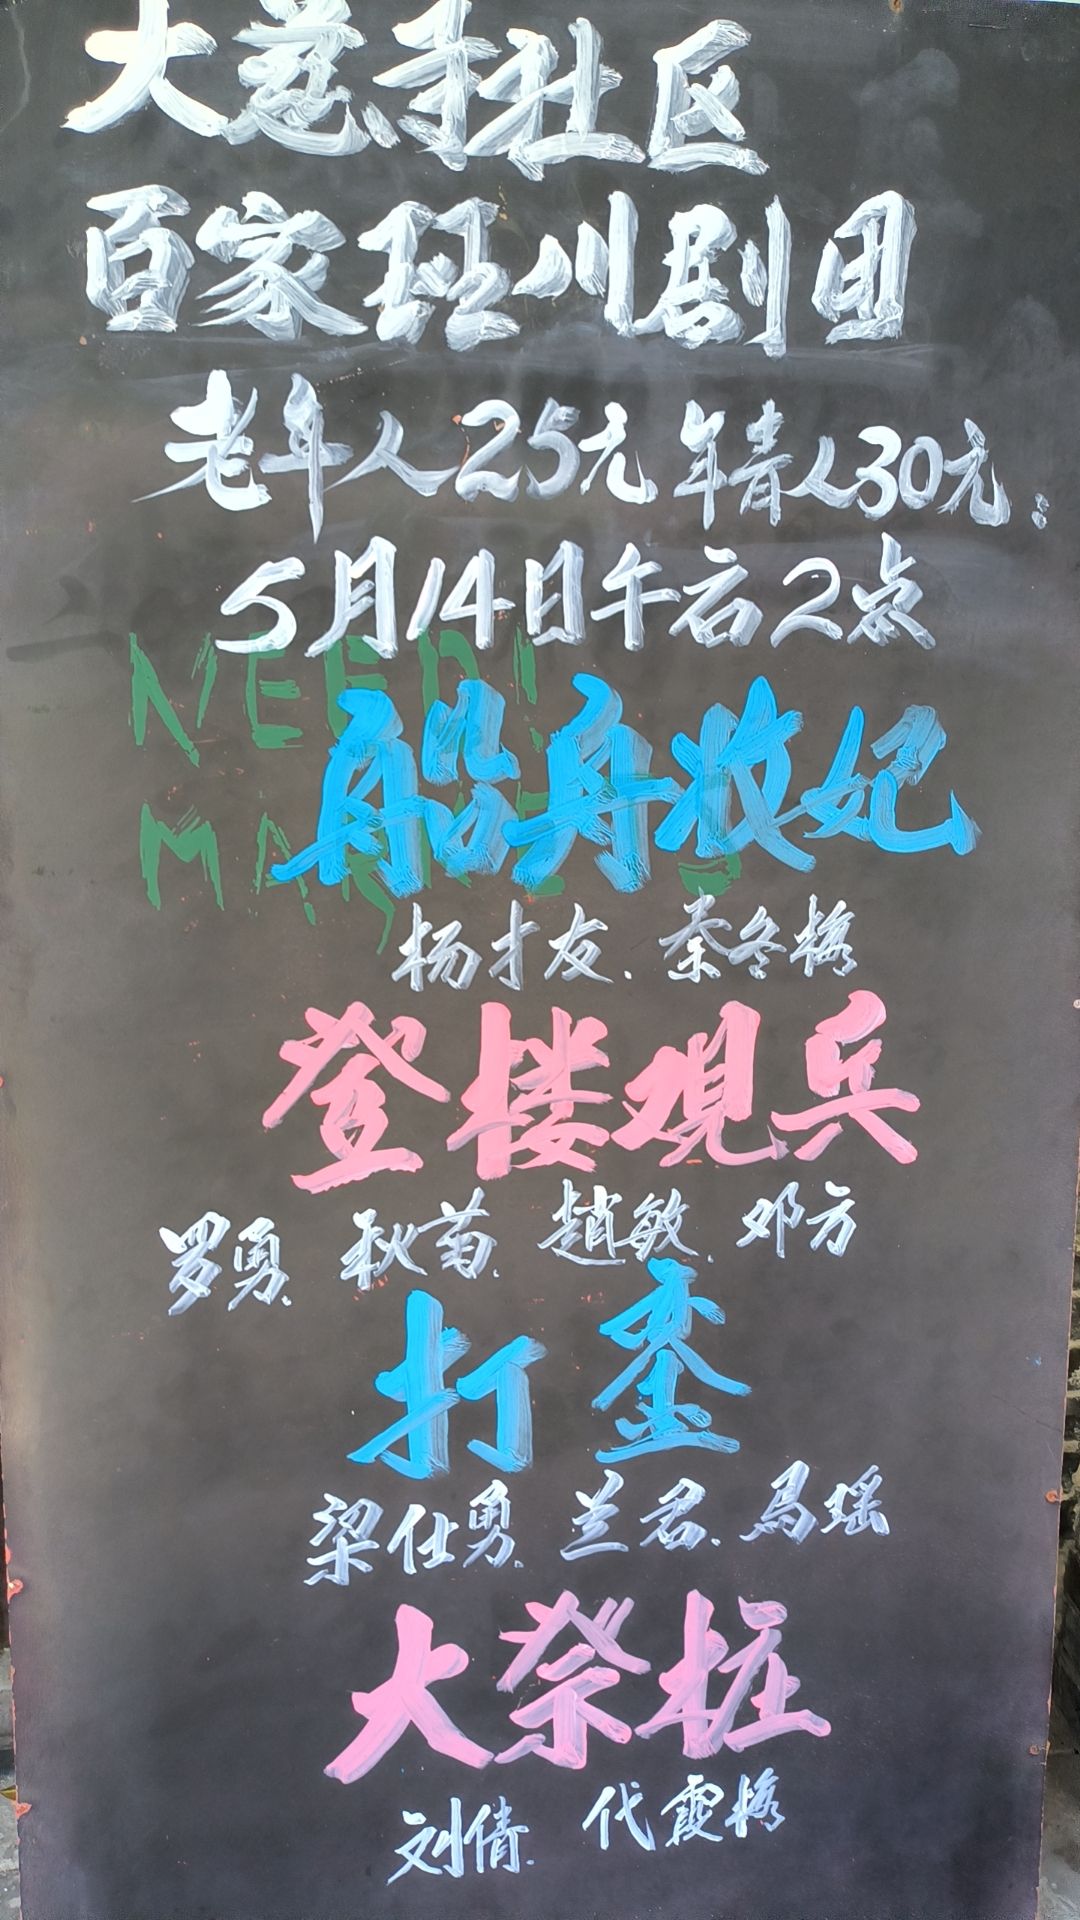 大慈寺社区
百家班川剧团
老年人25元 年青人30元:
5月14日午后2点
NEED!
船舟妆妃
杨才友、秦冬梅
登楼观兵
罗勇、秋菊、趙敏、邓方
打銮
梁仕勇、兰君、马瑶
大祭桩
刘倩、代霞梅